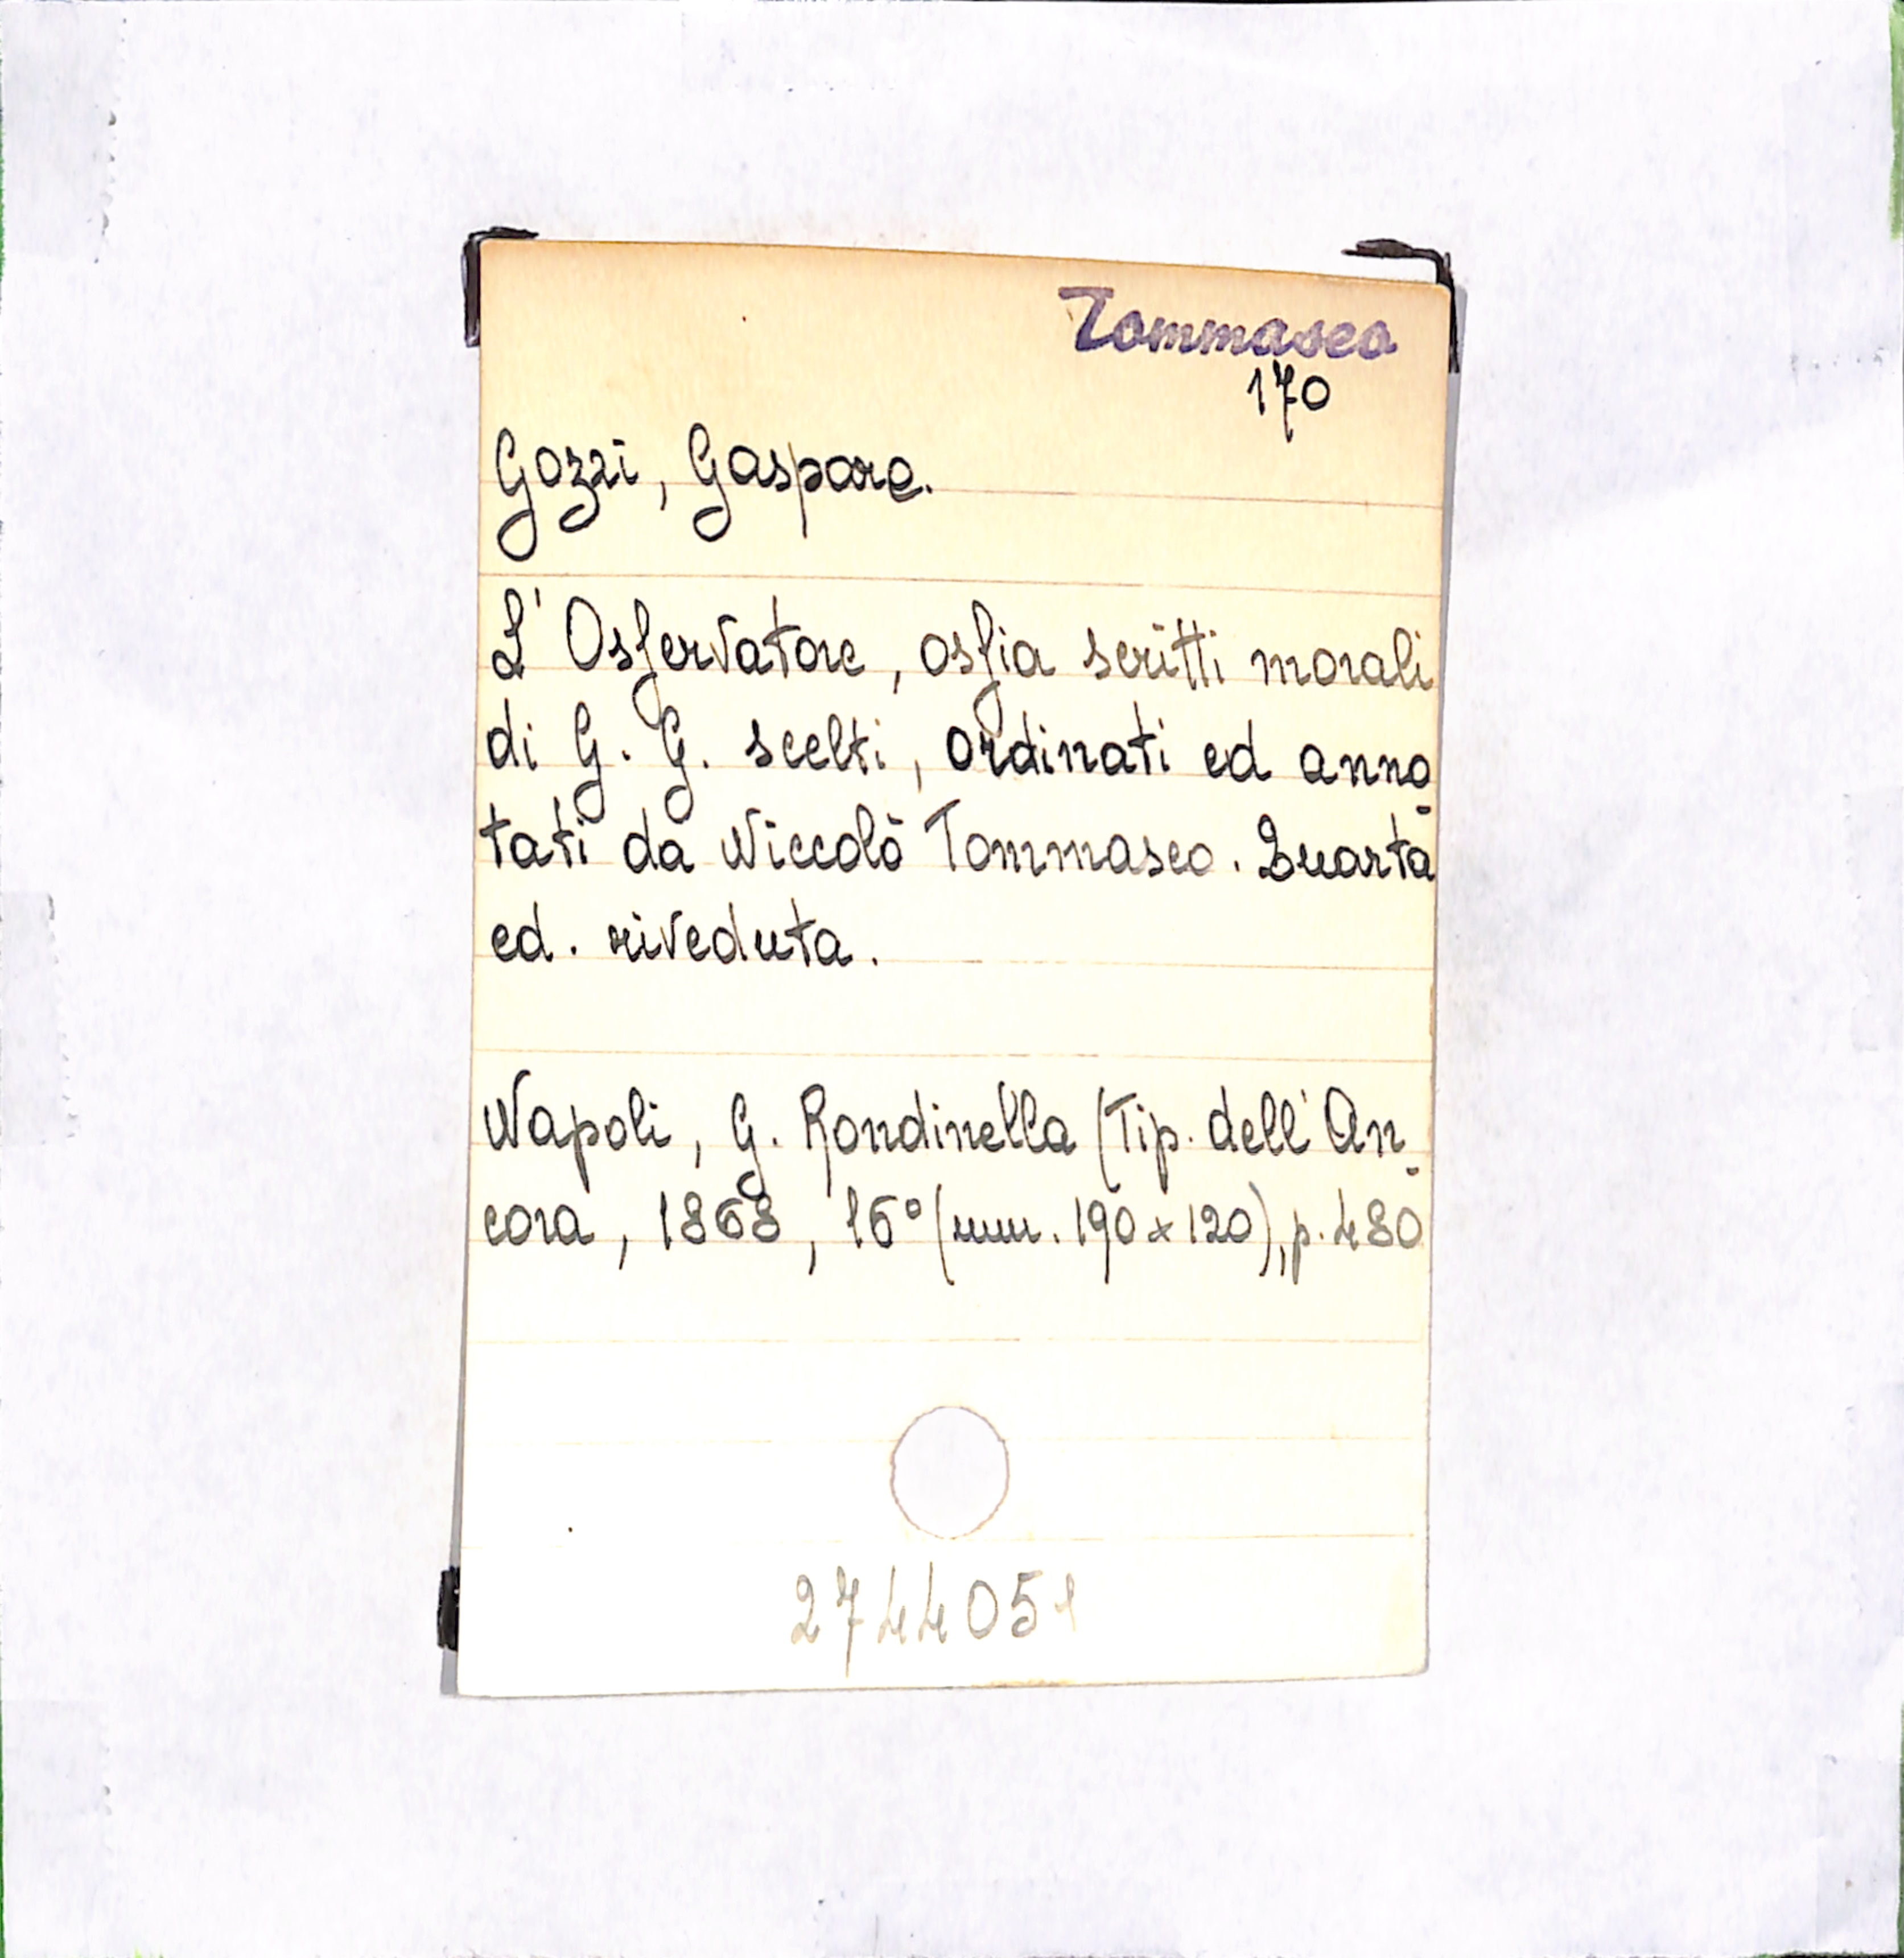 Tommaseo
170
Gozzi, Gaspare.
L'Osservatore, ossia scritti morali
di G. G. scelti, ordinati ed anno-
tati da Niccolò Tommaseo. Quarta
ed. riveduta.
Napoli, G. Rondinella (Tip. dell'An-
cora, 1868, 16° (mm. 190 x 120), p. 480
2744051